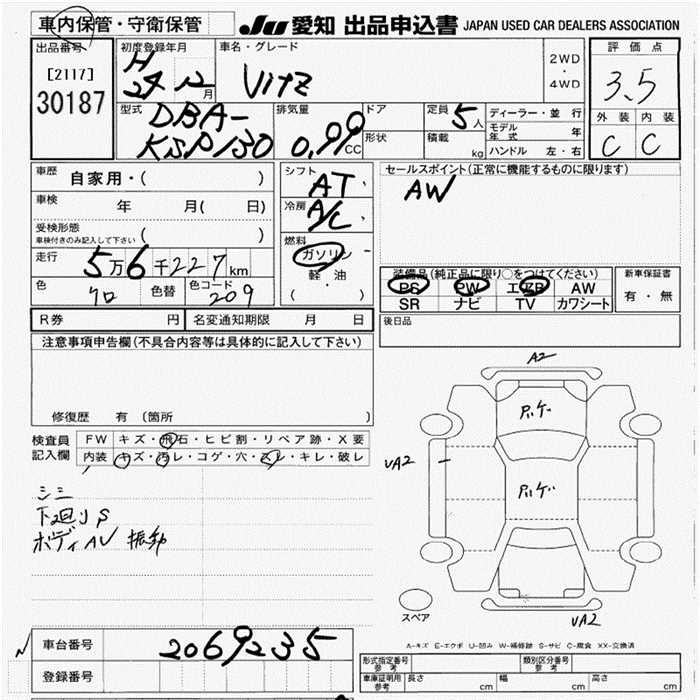 車内保管・守衛保管 JU 愛知 出品申込書 JAPAN USED CAR DEALERS ASSOCIATION
出品番号 初度登録年月 車名・グレード 2WD・4WD 評価点
[2117] H 24 12月 Vitz 3.5
30187
型式 排気量 ドア 定員 5人 ディーラー・並行 外装 内装
DBA- モデル年式 年
KSP130 0.99CC 形状 積載 kg ハンドル 左・右 C C
車歴 自家用・( ) シフト AT セールスポイント(正常に機能するものに限ります)
車検 年 月( 日) 冷房 A/C AW
受検形態
車検付きのみ記入して下さい ( ) 燃料
ガソリン
走行 5万6千227km 軽・油 装備品(純正品に限り○をつけてください) 新車保証書
( ) PS PW エアB AW 有・無
色 クロ 色替 色コード 209 SR ナビ TV カワシート
R券 円 名変通知期限 月 日 後日品
注意事項申告欄(不具合内容等は具体的に記入して下さい)
A2
修復歴 有 (箇所
検査員記入欄 FW キズ・飛石・ヒビ割・リペア跡・X要
内装 キズ・汚レ・コゲ・穴・スレ・キレ・破レ
UA2
シミ
下廻りS
ボディAU 振動
スペア
UA2
A-キズ E-エクボ U-凹み W-補修跡 S-サビ C-腐食 XX-交換済
車台番号 2069235
形式指定番号 参考 類別区分番号 参考
登録番号 車庫証明用 参考 長さ cm 幅 cm 高さ cm